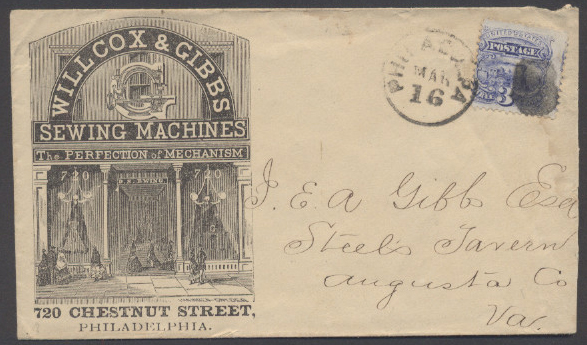 WILLCOX & GIBBS
G
SEWING MACHINES
The PERFECTION of MECHANISM
720 720
720 CHESTNUT STREET,
PHILADELPHIA.
MAR
16
PA
POSTAGE
3
J. E A Gibb Esq
Steel's Tavern
Augusta Co
Va.